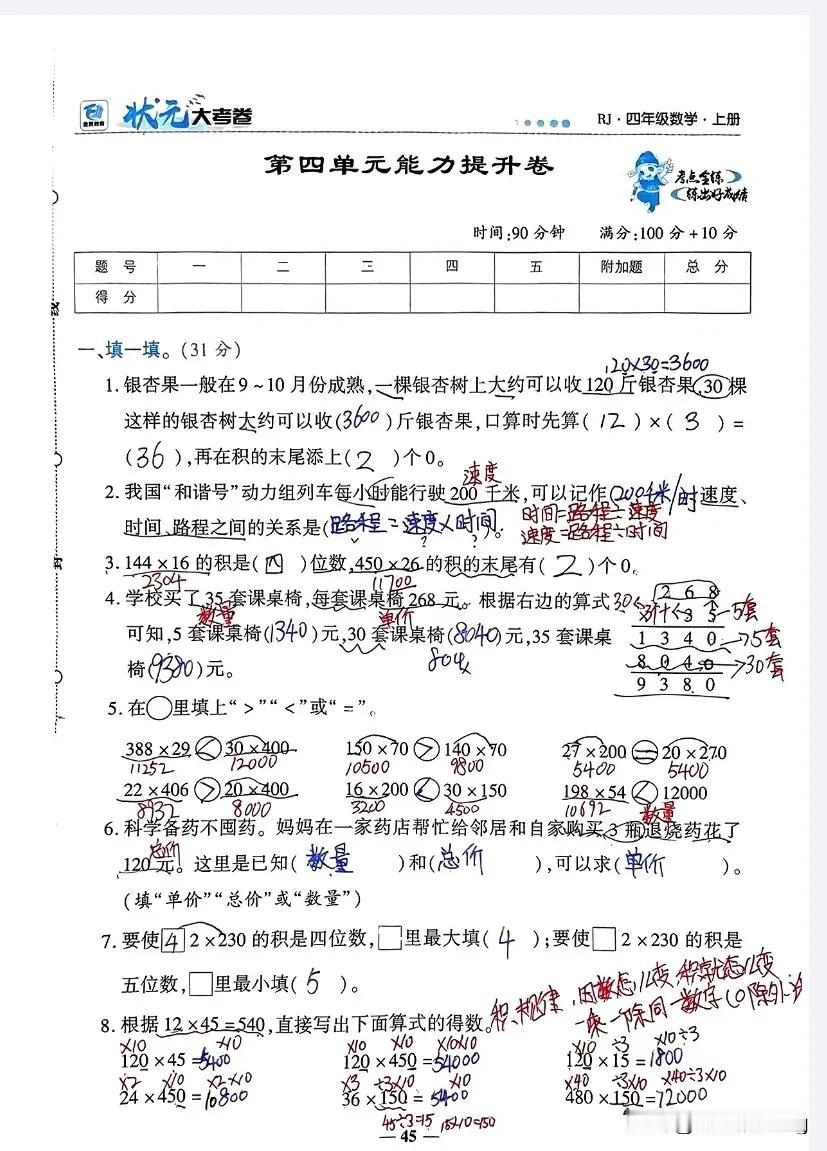 状元大考卷
RJ·四年级数学·上册
第四单元能力提升卷
考点全练
练出好成绩
时间:90分钟 满分:100分+10分
题号 一 二 三 四 五 附加题 总分
得分
一、填一填。(31分)
120×30=3600
1. 银杏果一般在9~10月份成熟,一棵银杏树上大约可以收120斤银杏果,30棵
这样的银杏树大约可以收(3600)斤银杏果,口算时先算(12)×(3)=
(36),再在积的末尾添上(2)个0。
速度
2. 我国“和谐号”动力组列车每小时能行驶200千米,可以记作(200千米/时速度、
时间、路程之间的关系是(路程=速度×时间)。 时间=路程÷速度
速度=路程÷时间
3. 144×16的积是(四)位数,450×26的积的末尾有(2)个0。
2304 11700
4. 学校买了35套课桌椅,每套课桌椅268元。根据右边的算式
数量 单价
可知,5套课桌椅(1340)元,30套课桌椅(8040)元,35套课桌
椅(9380)元。
268
×35
1340→5套
8040→30套
9380
5. 在○里填上“>”“<”或“=”。
388×29<30×400 150×70>140×70 27×200=20×270
11252 12000 10500 9800 5400 5400
22×406>20×400 16×200<30×150 198×54<12000
8932 8000 3200 4500 10692
数量
6. 科学备药不囤药。妈妈在一家药店帮忙给邻居和自家购买3瓶退烧药花了
总价
120元。这里是已知(数量)和(总价),可以求(单价)。
(填“单价”“总价”或“数量”)
7. 要使4 2×230的积是四位数,□里最大填(4);要使□2×230的积是
五位数,□里最小填(5)。
积规律,因数怎么变,积就怎么变
一乘一除同一数字(0除外)
8. 根据12×45=540,直接写出下面算式的得数。
×10 ×10 ×10 ×10×10 ×10 ÷3 ×10÷3
120×45=5400 120×450=54000 120×15=1800
×2 ×10 ×2×10 ×3 ÷3×10 ×10 ×40 ÷3×10 ×40÷3×10
24×450=10800 36×150=5400 480×150=72000
45÷3=15 15×10=150
45